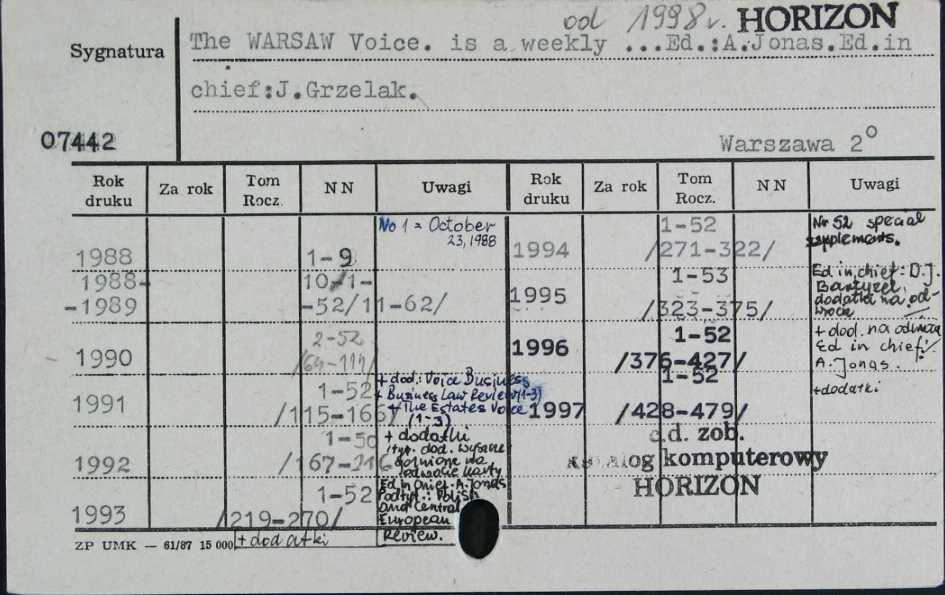 od 1998 r. HORIZON
Sygnatura
The WARSAW Voice. is a weekly ...Ed.:A.Jonas.Ed.in
chief:J.Grzelak.
07442
Warszawa 2°
Rok druku Za rok Tom Rocz. NN Uwagi Rok druku Za rok Tom Rocz. NN Uwagi
No 1 = October
23, 1988
1988 1-9
1988- 10/1-
-1989 -52/11-62/
1990 2-52
1991 1-52
/115-166/
+ dod.: Voice Business
+ Business Law Review (1-3)
+ The Estates Voice
(1-3)
1992 1-50
+ dodatki
1993 1-52
/219-270/
Ed in chief: A. Jonas
Podtyt.: Polish
and Central
European
Review.
+ dodatki
1994 1-52
/271-322/
Nr 52 special
supplements.
1995 1-53
/323-375/
Ed in chief: D.J.
Bartyzel,
dodatki na od-
wrocie
1996 1-52
/376-427/
+ dod. na
Ed in chief:
A. Jonas.
1997 1-52
/428-479/
+ dodatki
c.d. zob.
katalog komputerowy
HORIZON
ZP UMK — 61/87 15 000